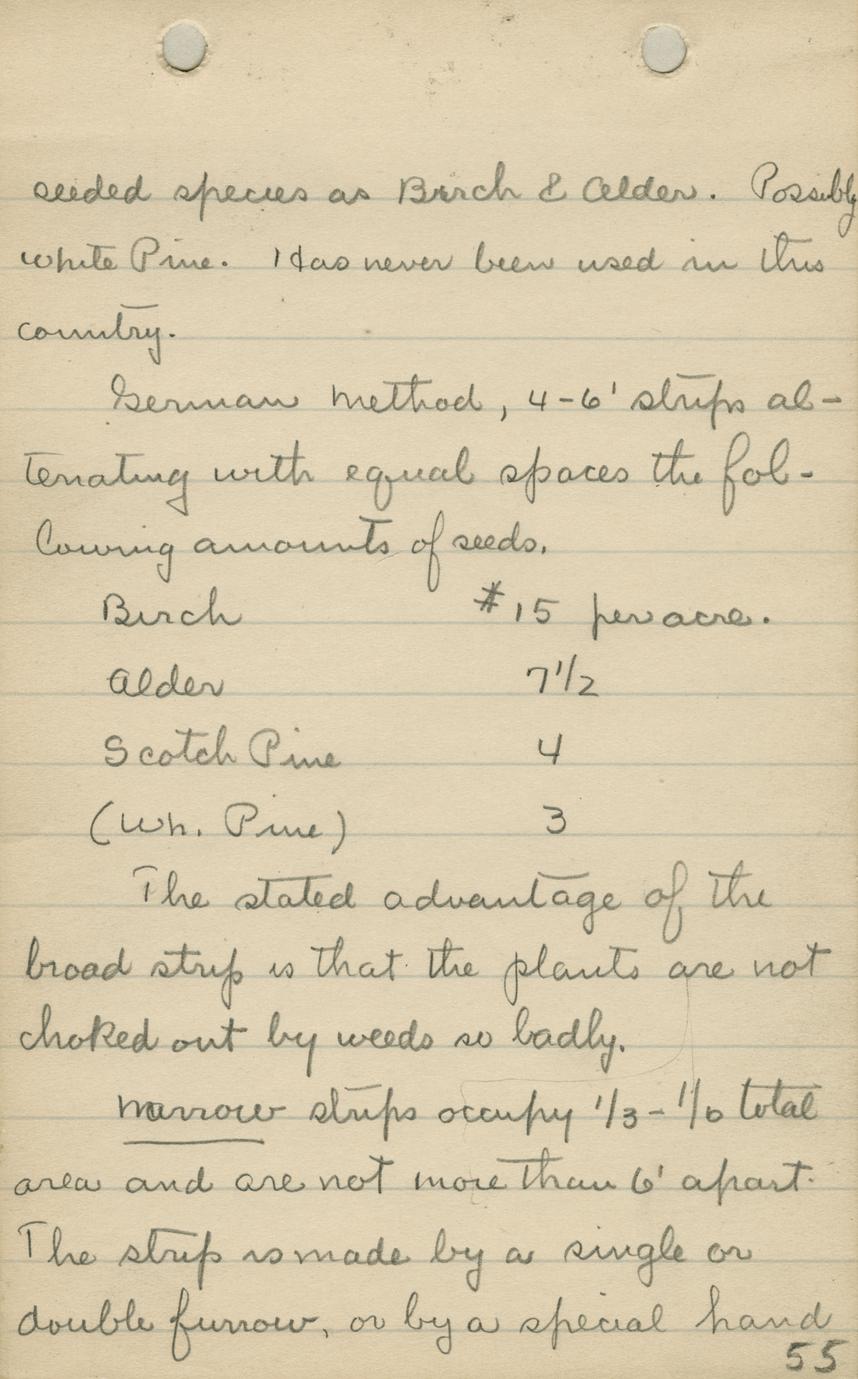 seeded species as Birch & Alder. Possibly
white Pine. Has never been used in this
country.
German method, 4-6' strips al-
ternating with equal spaces the fol-
lowing amounts of seeds.
Birch #15 per acre.
Alder 7 1/2
Scotch Pine 4
(Wh. Pine) 3
The stated advantage of the
broad strip is that the plants are not
choked out by weeds so badly.
Narrow strips occupy 1/3 - 1/6 total
area and are not more than 6' apart.
The strip is made by a single or
double furrow, or by a special hand
55